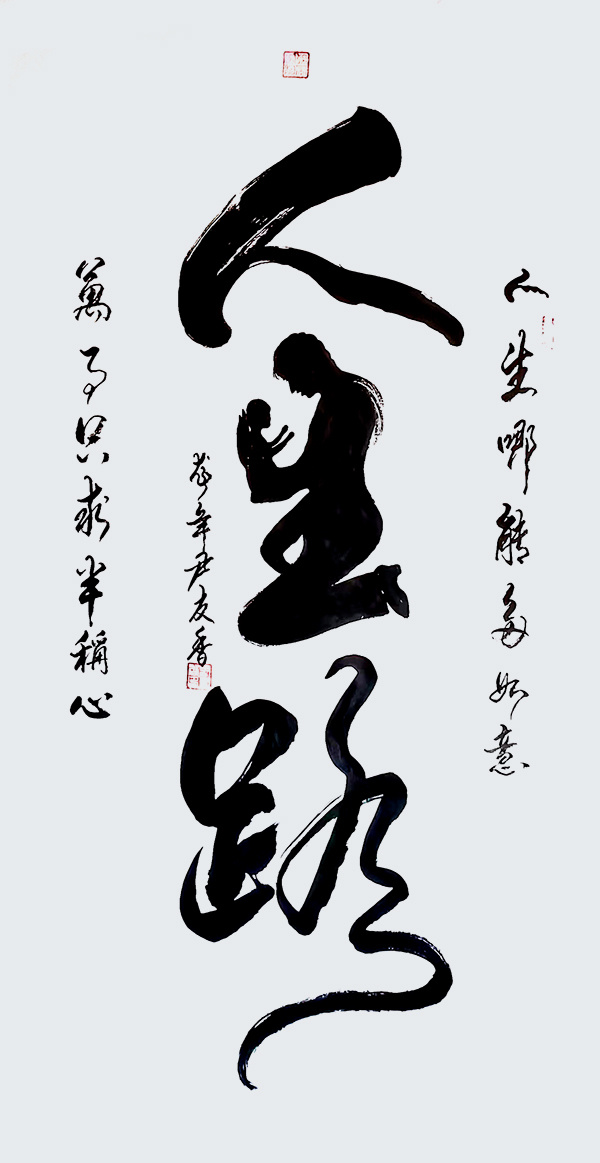 人生路
人生哪能多如意
萬事只求半稱心
年尹友香